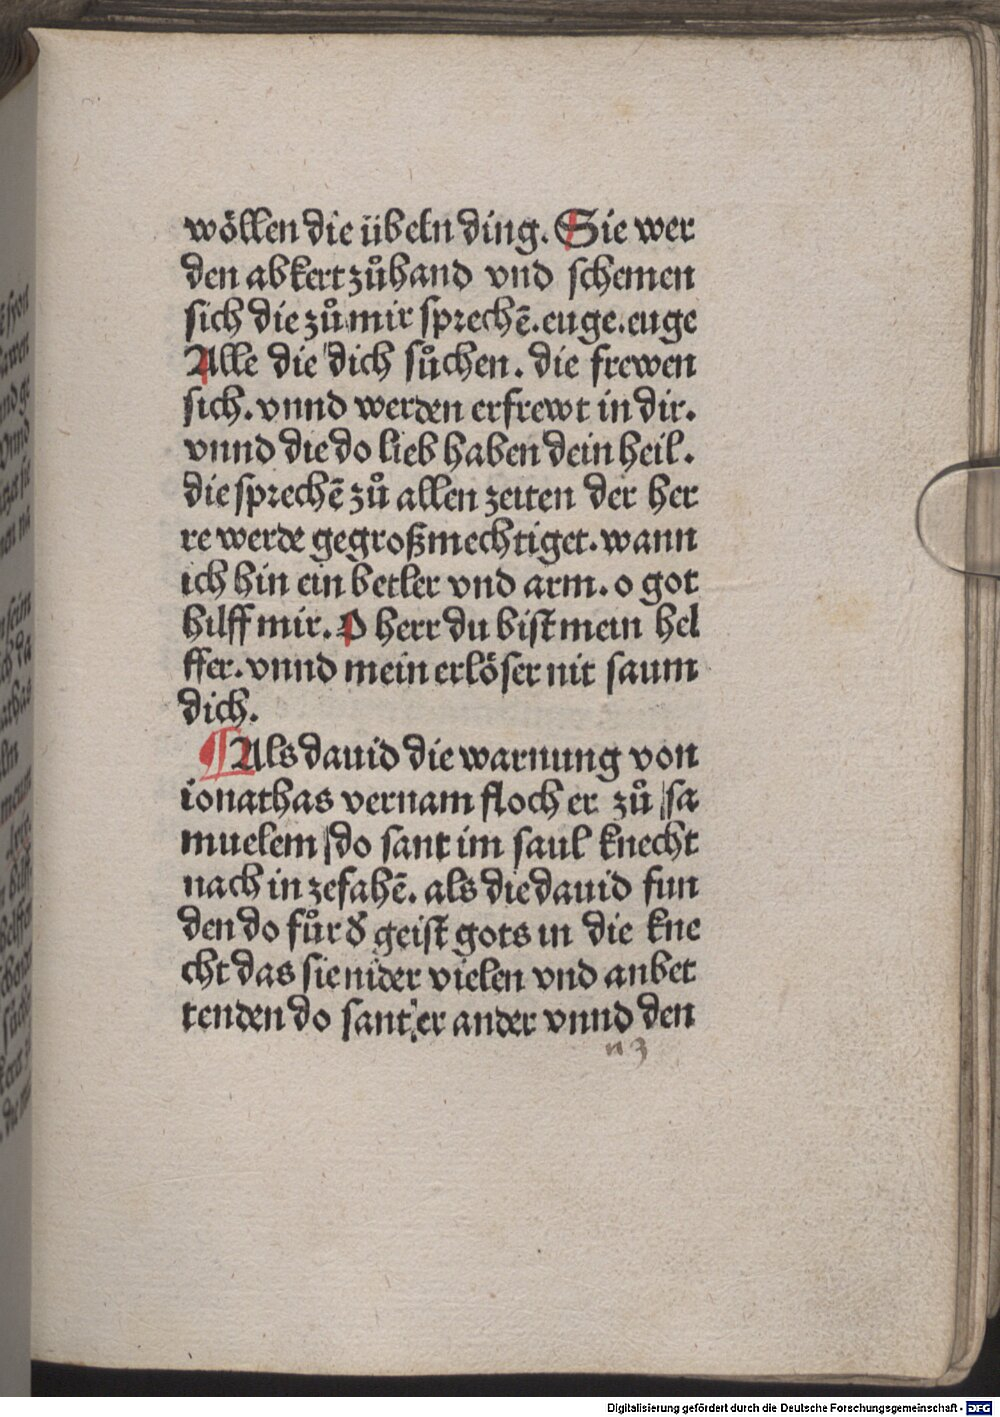 wöllen die übeln ding. Sie wer
den abkert zůhand vnd schemen
sich die zů mir sprechē. euge. euge
Alle die dich sůchen. die frewen
sich. vnnd werden erfrewt in dir.
vnnd die do lieb haben dein heil.
die sprechē zů allen zeiten der her
re werde gegroßmechtiget. wann
ich bin ein betler vnd arm. o got
hilff mir. O herr du bist mein hel
ffer. vnnd mein erlöser nit saum
dich.
¶ Als dauid die warnung von
ionathas vernam floch er zů sa
muelem do sant im saul knecht
nach in zefahē. als die dauid fun
den do fůr d̕ geist gots in die kne
cht das sie nider vielen vnd anbet
tenden do sant er ander vnnd den
n 3
Digitalisierung gefördert durch die Deutsche Forschungsgemeinschaft - DFG